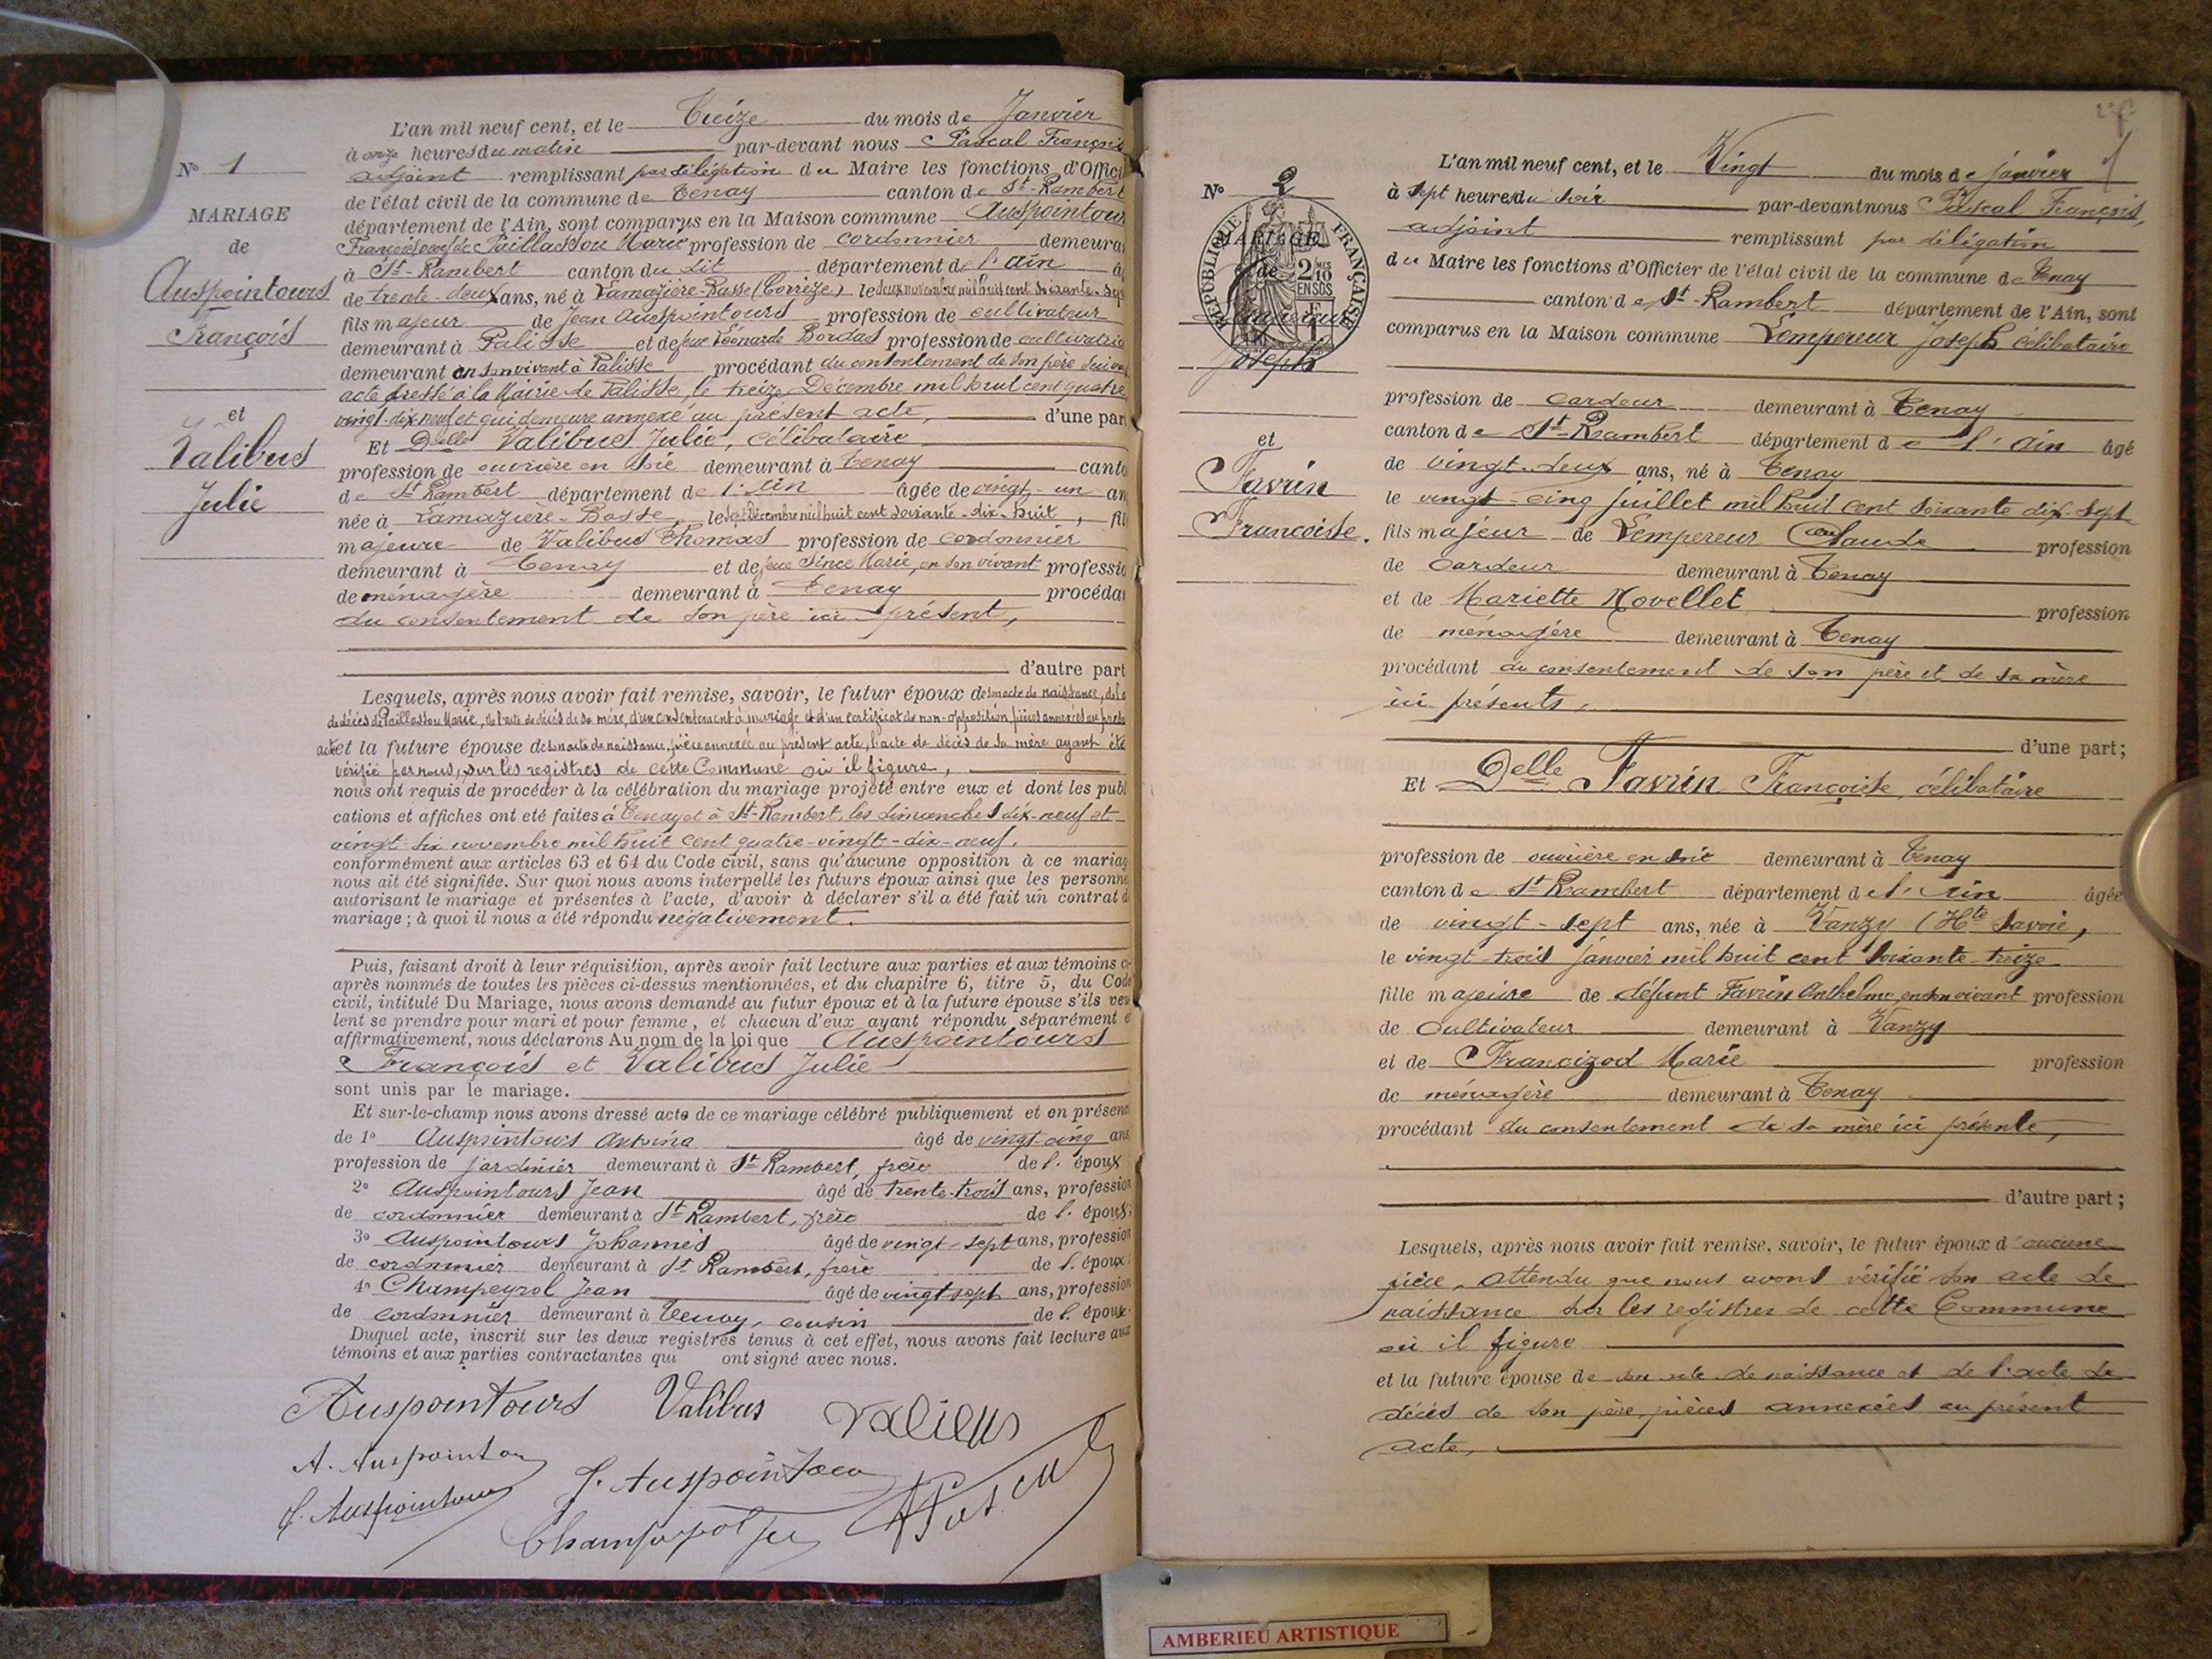 L'an mil neuf cent, et le Treize du mois de Janvier
à onze heures du matin par-devant nous Pascal François
adjoint remplissant par délégation du Maire les fonctions d'Offici
de l'état civil de la commune de Tenay canton de St-Rambert
département de l'Ain, sont comparus en la Maison commune Auspointour
François veuf de Paillassou Marie profession de cordonnier demeura
à St-Rambert canton du dit département de l'ain â
de trente-deux ans, né à Lamazière-Basse (Corrèze) le deux novembre mil huit cent soixante-sept
fils majeur de Jean Auspointours profession de cultivateur
demeurant à Palisse et de feue Léonarde Bordas profession de cultivatrice
demeurant en son vivant à Palisse procédant du consentement de son père suivant
acte dressé à la Mairie de Palisse, le treize Décembre mil huit cent quatre
vingt-dix-neuf et qui demeure annexé au présent acte, d'une par
Et Delle Valibus Julie, célibataire
profession de ouvrière en soie demeurant à Tenay canto
de St Rambert département de l'Ain âgée de vingt-un an
née à Lamazière-Basse, le sept Décembre mil huit cent soixante-dix-huit, fil
majeure de Valibus Thomas profession de cordonnier
demeurant à Tenay et de feue Since Marie, en son vivant professio
de ménagère demeurant à Tenay procédan
du consentement de son père ici présent,
d'autre part
Lesquels, après nous avoir fait remise, savoir, le futur époux de son acte de naissance, de l'a
de décès de Paillassou Marie, de l'acte de décès de sa mère, d'un consentement à mariage et d'un certificat de non-opposition, pièces annexées au présent
acte et la future épouse de son acte de naissance, pièce annexée au présent acte, l'acte de décès de sa mère ayant été
vérifié par nous, sur les registres de cette Commune où il figure,
nous ont requis de procéder à la célébration du mariage projeté entre eux et dont les publ
cations et affiches ont été faites à Tenay et à St-Rambert, les dimanches dix-neuf et
vingt-six novembre mil huit cent quatre-vingt-dix-neuf.
conformément aux articles 63 et 64 du Code civil, sans qu'aucune opposition à ce mariag
nous ait été signifiée. Sur quoi nous avons interpellé les futurs époux ainsi que les personne
autorisant le mariage et présentes à l'acte, d'avoir à déclarer s'il a été fait un contrat d
mariage ; à quoi il nous a été répondu négativement.
Puis, faisant droit à leur réquisition, après avoir fait lecture aux parties et aux témoins ci-
après nommés de toutes les pièces ci-dessus mentionnées, et du chapitre 6, titre 5, du Code
civil, intitulé Du Mariage, nous avons demandé au futur époux et à la future épouse s'ils veu
lent se prendre pour mari et pour femme, et chacun d'eux ayant répondu séparément e
affirmativement, nous déclarons Au nom de la loi que Auspointours
François et Valibus Julie
sont unis par le mariage.
Et sur-le-champ nous avons dressé acte de ce mariage célébré publiquement et en présenc
de 1° Auspointours Antoine âgé de vingt-cinq ans
profession de jardinier demeurant à St Rambert, frère de l'époux
2° Auspointours Jean âgé de trente-trois ans, profession
de cordonnier demeurant à St Rambert, frère de l'époux;
3° Auspointours Johannès âgé de vingt-sept ans, profession
de cordonnier demeurant à St Rambert, frère de l'époux;
4° Champeyrol Jean âgé de vingt sept ans, profession
de cordonnier demeurant à Tenay, cousin de l'époux.
Duquel acte, inscrit sur les deux registres tenus à cet effet, nous avons fait lecture aux
témoins et aux parties contractantes qui ont signé avec nous.
Auspointours Valibus Valibus
A. Auspointou
J. Auspointour J. Auspointou
Champeyrol Jean F Pascal
N° 1
MARIAGE
de
Auspointours
François
et
Valibus
Julie
N° 2
MARIAGE
de
Lempereur
Joseph
et
Favrin
Françoise.
RÉPUBLIQUE FRANÇAISE
2/10
EN SUS
L'an mil neuf cent, et le Vingt du mois de janvier
à sept heures du soir par-devant nous Pascal François,
adjoint remplissant par délégation
du Maire les fonctions d'Officier de l'état civil de la commune de Tenay
canton de St-Rambert département de l'Ain, sont
comparus en la Maison commune Lempereur Joseph célibataire
profession de cardeur demeurant à Tenay
canton de St-Rambert département de l'ain âgé
de vingt-deux ans, né à Tenay
le vingt-cinq juillet mil huit cent soixante dix-sept
fils majeur de Lempereur Claude profession
de cardeur demeurant à Tenay
et de Mariette Novellet profession
de ménagère demeurant à Tenay
procédant du consentement de son père et de sa mère
ici présents,
d'une part;
Et Delle Favrin Françoise, célibataire
profession de ouvrière en soie demeurant à Tenay
canton de St Rambert département de l'Ain âgée
de vingt-sept ans, née à Vanzy (Hte Savoie,
le vingt-trois janvier mil huit cent soixante-treize
fille majeure de défunt Favrin Anthelme, en son vivant profession
de cultivateur demeurant à Vanzy
et de Francizod Marie profession
de ménagère demeurant à Tenay
procédant du consentement de sa mère ici présente,
d'autre part ;
Lesquels, après nous avoir fait remise, savoir, le futur époux d'aucune
pièce, attendu que nous avons vérifié son acte de
naissance sur les registres de cette Commune
où il figure
et la future épouse de son acte de naissance et de l'acte de
décès de son père, pièces annexées au présent
acte,
AMBERIEU ARTISTIQUE